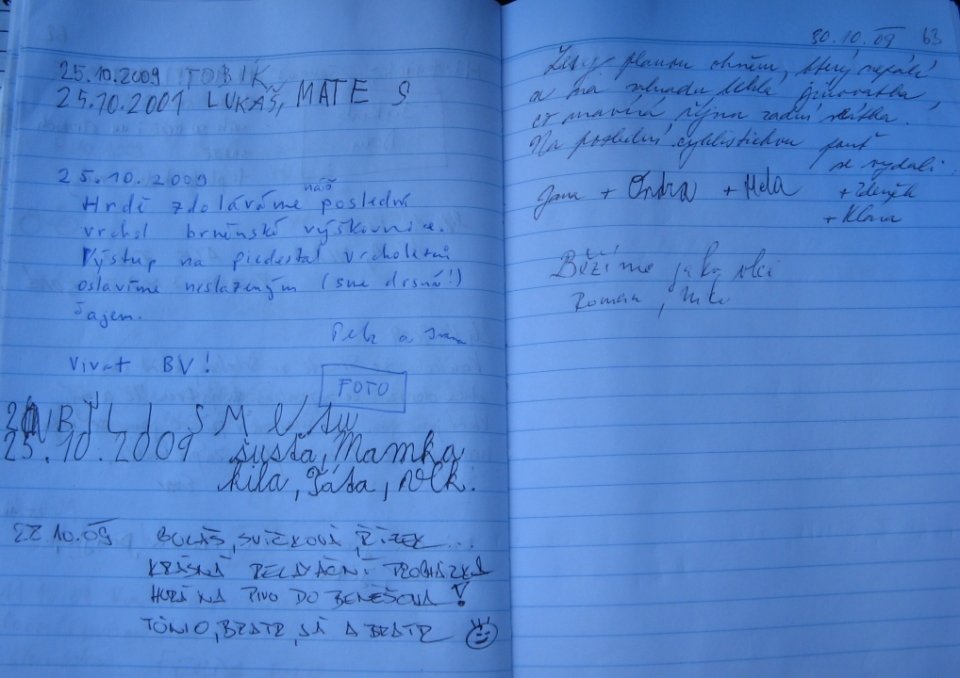 25.10.2009 TOBIK
25.10.2009 LUKÁŠ, MATES
25.10.2009
Hrdě zdoláváme náš poslední
vrchol brněnské výškovnice.
Výstup na piedestal vrcholení
oslavíme neslazeným (sme drsné!)
čajem.
Petr a
Vivat BV!
FOTO
BYLI SME TU
25.10.2009 šusta, Mamka
kila, Táta, Vlk.
27.10.09 GULÁŠ, SVÍČKOVÁ, ŘÍZEK...
KRÁSNÁ RELAXAČNÍ PROCHÁZKA
HURÁ NA PIVO DO BENEŠOVA!
TÓNIO, BRATR, JÁ A BRATR
30.10.09 63
planou ohněm, který nepálí
a na
října zadní vrátka.
Na poslední cyklistickou pouť
se vydali:
Jana + Ondra + Hela + Zdeněk
+ Klára
Běžíme jako vlci
Roman,